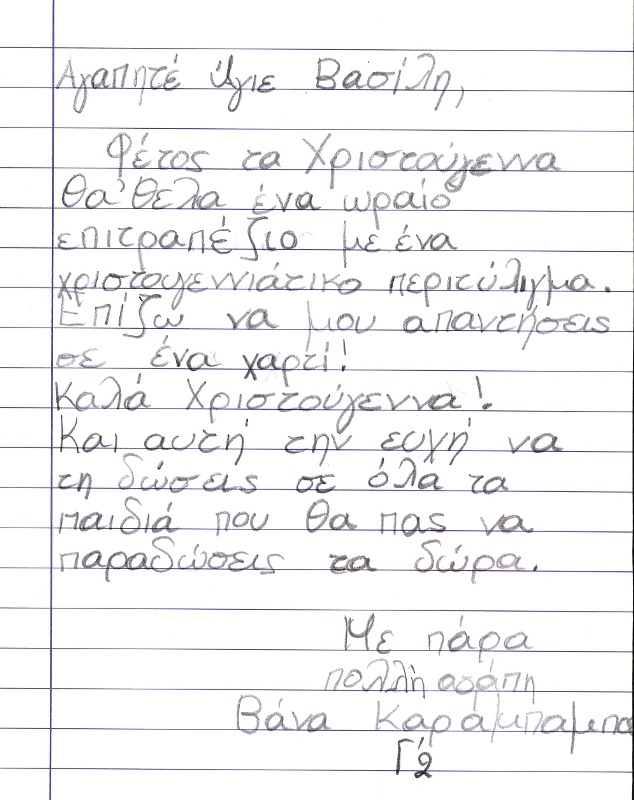 Αγαπητέ Άγιε Βασίλη,
Φέτος τα Χριστούγεννα
θα'θελα ένα ωραίο
επιτραπέζιο με ένα
χριστουγεννιάτικο περιτύλιγμα.
Επίζω να μου απαντήσεις
σε ένα χαρτί!
Καλά Χριστούγεννα!
Και αυτή την ευχή να
τη δώσεις σε όλα τα
παιδιά που θα πας να
παραδώσεις τα δώρα.
Με πάρα
πολλή αγάπη
Βάνα
Γ'2